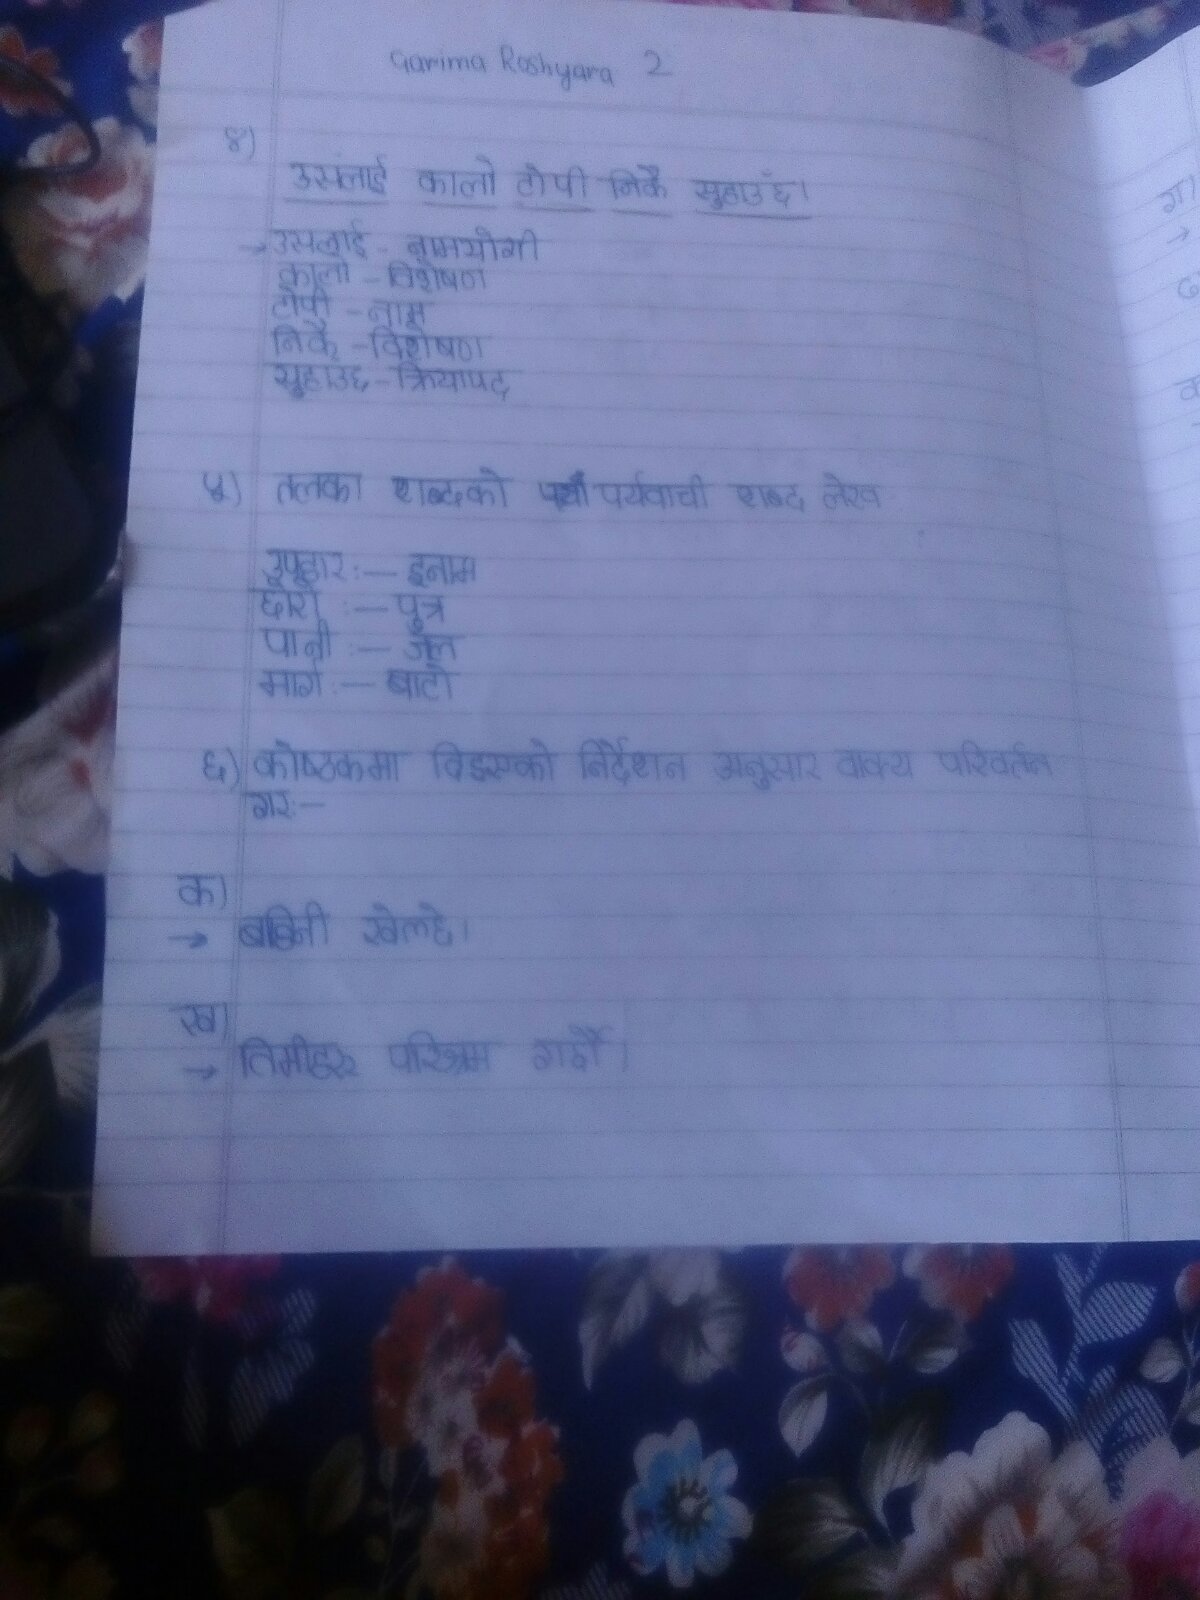 Garima Roshyara 2
४)
उसलाई कालो टोपी निकै सुहाउँछ।
→ उसलाई - नामयोगी
कालो - विशेषण
टोपी - नाम
निकै - विशेषण
सुहाउछ - क्रियापद
५) तलका शब्दको पर्यवाची शब्द लेख
उपहार :— इनाम
छोरो :— पुत्र
पानी :— जल
मार्ग :— बाटो
६) कोष्ठकमा दिइएको निर्देशन अनुसार वाक्य परिवर्तन
गर:-
क)
→ बहिनी खेल्छे।
ख)
→ तिमीहरू परिश्रम गर्छौ।
ग)
→